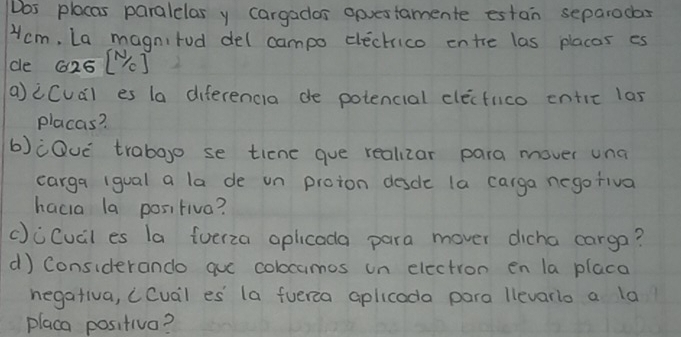 Dos placas paralelas y cargadas opuestamente están separadas
4cm. La magnitud del campo eléctrico entre las placas es
de 625 [N/C]
a) ¿Cuál es la diferencia de potencial eléctrico entre las
placas?
b) ¿Qué trabajo se tiene que realizar para mover una
carga igual a la de un proton desde la carga negativa
hacia la positiva?
c) ¿Cuál es la fuerza aplicada para mover dicha carga?
d) Considerando que colocamos un electron en la placa
negativa, ¿Cuál es la fuerza aplicada para llevarlo a la
placa positiva?